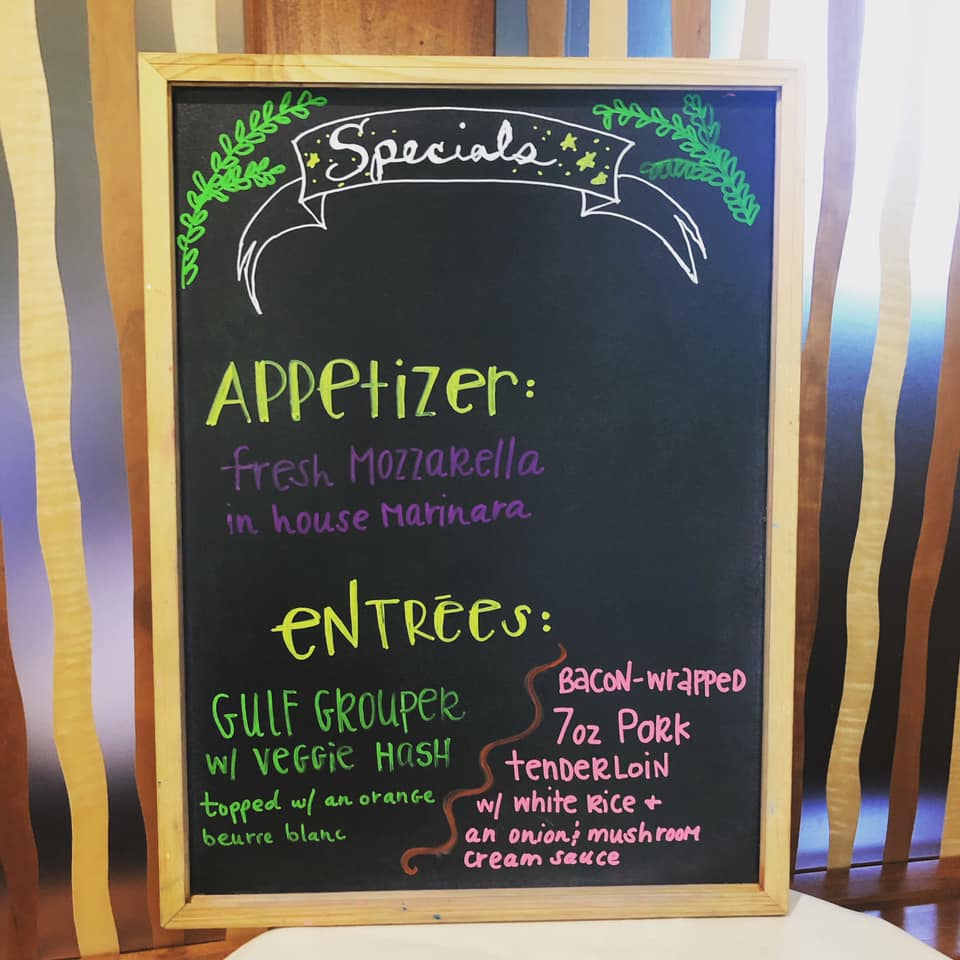 Specials
Appetizer:
fresh Mozzarella
in house Marinara
ENTRĒES:
GULF GROUPER
w/ VEGGIE HASH
topped w/ an orange
beurre blanc
BACON-wrapped
7oz PORK
tENDERLOIN
w/ white Rice +
an onion & mushroom
cream sauce